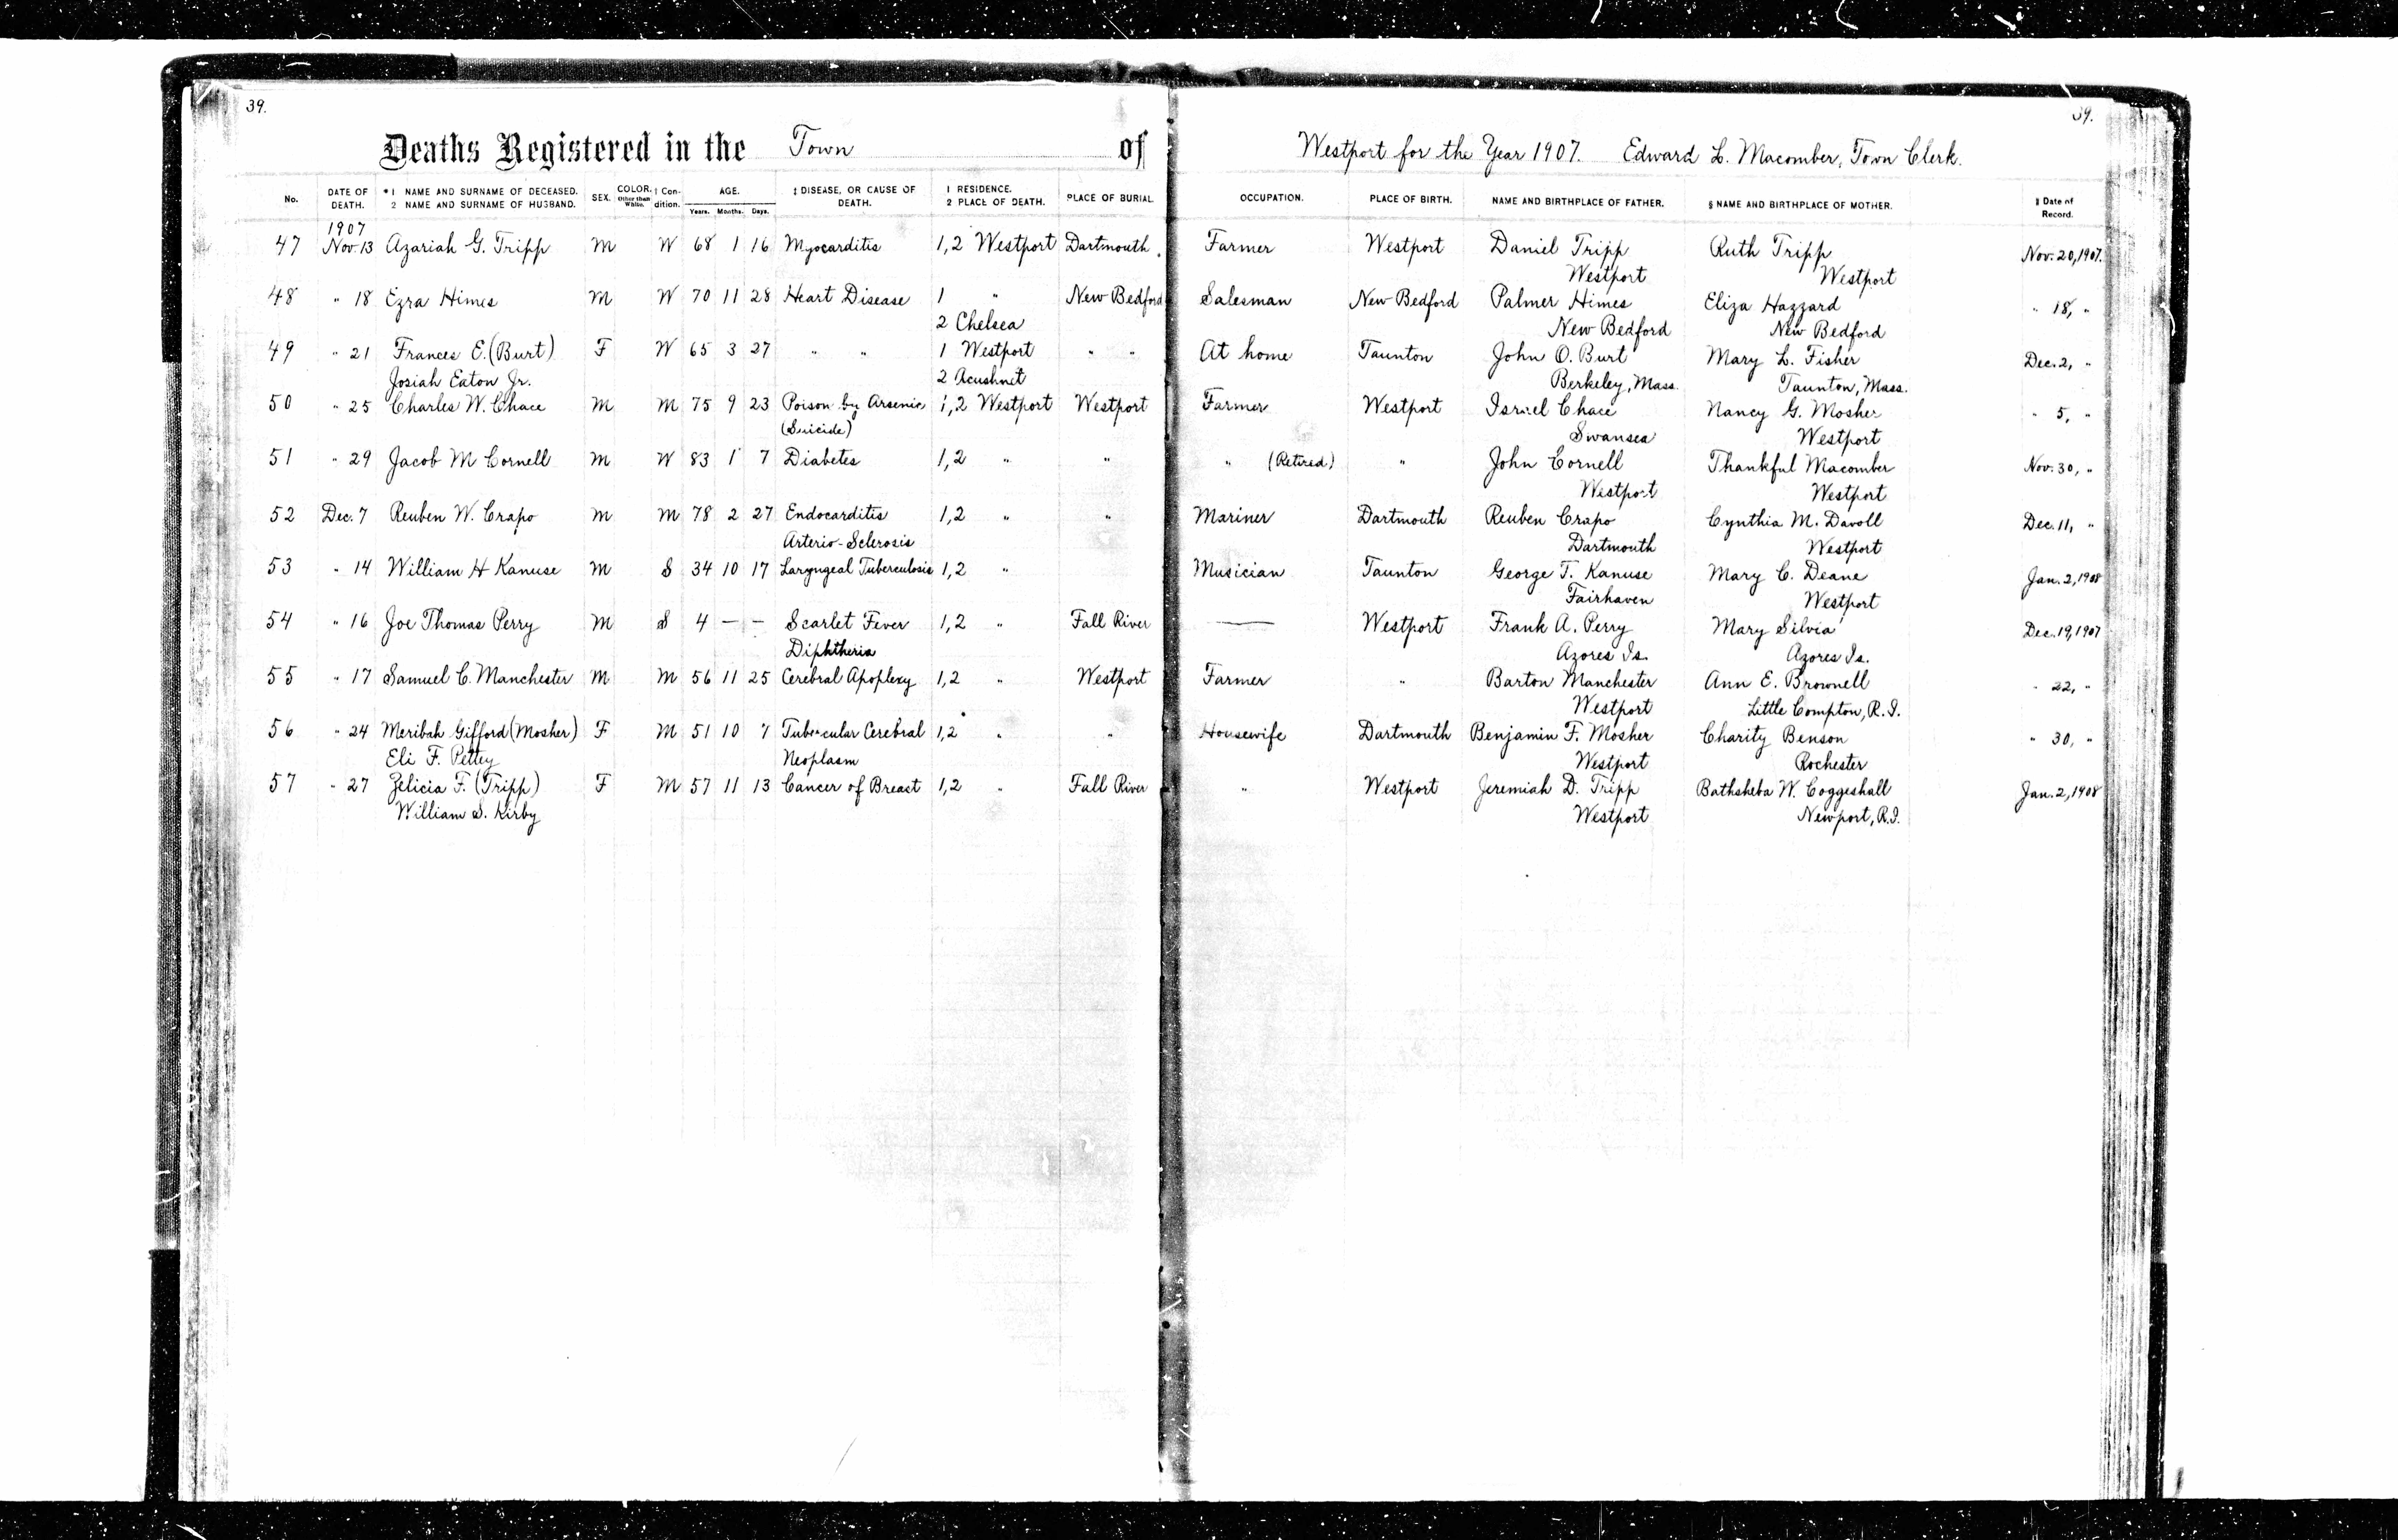 39.
39.
Deaths Registered in the Town of Westport for the Year 1907. Edward L. Macomber, Town Clerk.
No. DATE OF DEATH. *1 NAME AND SURNAME OF DECEASED. 2 NAME AND SURNAME OF HUSBAND. SEX. COLOR. Other than White. † Condition. AGE. Years. Months. Days. ‡ DISEASE, OR CAUSE OF DEATH. 1 RESIDENCE. 2 PLACE OF DEATH. PLACE OF BURIAL. OCCUPATION. PLACE OF BIRTH. NAME AND BIRTHPLACE OF FATHER. § NAME AND BIRTHPLACE OF MOTHER. Date of Record.
1907
47 Nov. 13 Azariah G. Tripp M W 68 1 16 Myocarditis 1,2 Westport Dartmouth Farmer Westport Daniel Tripp Ruth Tripp Nov. 20, 1907.
Westport Westport
48 " 18 Ezra Himes M W 70 11 28 Heart Disease 1 " New Bedford Salesman New Bedford Palmer Himes Eliza Hazzard " 18, "
2 Chelsea New Bedford New Bedford
49 " 21 Frances E. (Burt) F W 65 3 27 " " 1 Westport " " At home Taunton John O. Burt Mary L. Fisher Dec. 2, "
Josiah Eaton Jr. 2 Acushnet Berkeley, Mass. Taunton, Mass.
50 " 25 Charles W. Chace M M 75 9 23 Poison by Arsenic 1,2 Westport Westport Farmer Westport Israel Chace Nancy G. Mosher " 5, "
(Suicide) Swansea Westport
51 " 29 Jacob M Cornell M W 83 1 7 Diabetes 1,2 " " " (Retired) " John Cornell Thankful Macomber Nov. 30, "
Westport Westport
52 Dec. 7 Reuben W. Crapo M M 78 2 27 Endocarditis 1,2 " " Mariner Dartmouth Reuben Crapo Cynthia M. Davoll Dec. 11, "
Arterio-Sclerosis Dartmouth Westport
53 " 14 William H Kanuse M S 34 10 17 Laryngeal Tuberculosis 1,2 " Musician Taunton George T. Kanuse Mary C. Deane Jan. 2, 1908
Fairhaven Westport
54 " 16 Joe Thomas Perry M S 4 — — Scarlet Fever 1,2 " Fall River — Westport Frank A. Perry Mary Silvia Dec. 19, 1907
Diphtheria Azores Is. Azores Is.
55 " 17 Samuel C. Manchester M M 56 11 25 Cerebral Apoplexy 1,2 " Westport Farmer " Barton Manchester Ann E. Brownell " 22, "
Westport Little Compton, R.I.
56 " 24 Meribah Gifford (Mosher) F M 51 10 7 Tubercular Cerebral 1,2 " " Housewife Dartmouth Benjamin F. Mosher Charity Benson " 30, "
Eli F. Pettey Neoplasm Westport Rochester
57 " 27 Zelicia F. (Tripp) F M 57 11 13 Cancer of Breast 1,2 " Fall River " Westport Jeremiah D. Tripp Bathsheba W. Coggeshall Jan. 2, 1908
William S. Kirby Westport Newport, R.I.